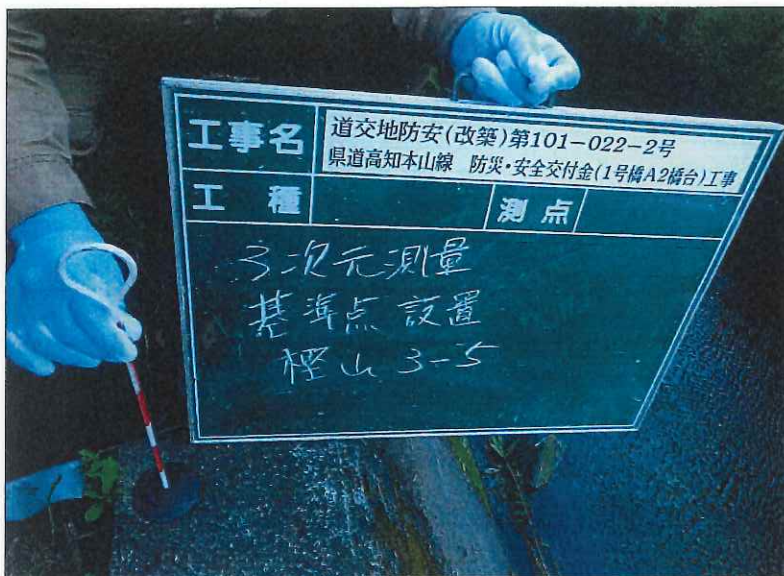 工事名
道交地防安(改築)第101-022-2号
県道高知本山線 防災・安全交付金(1号橋A2橋台)工事
工種
測点
3次元測量
基準点設置
樫山 3-5